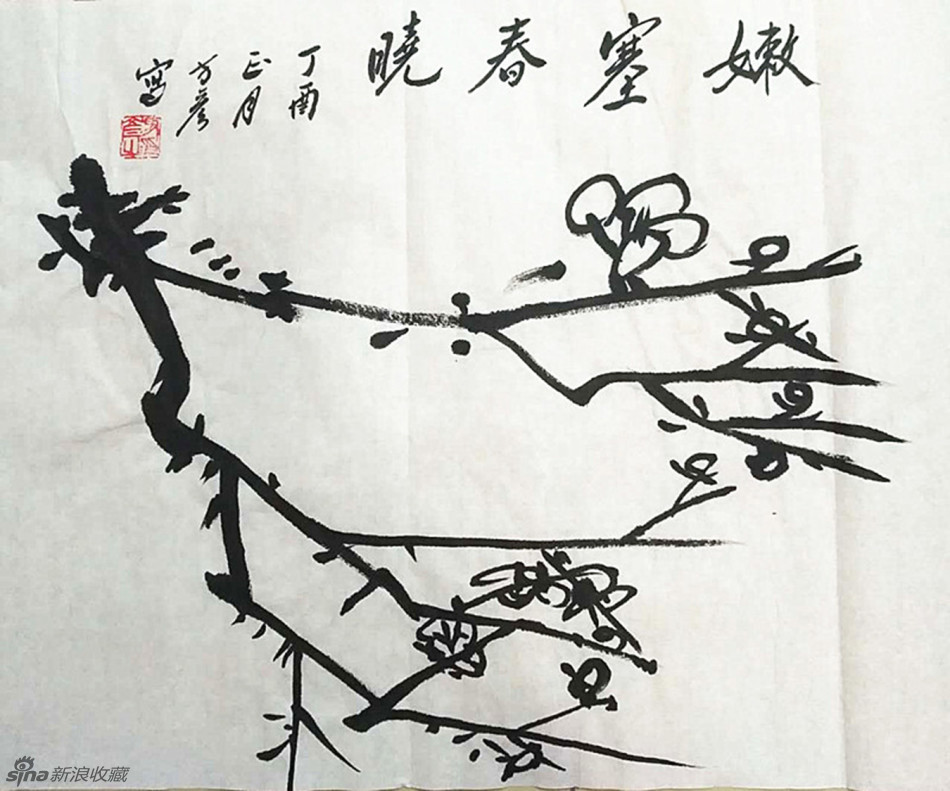 嫩塞春曉
丁酉
正月
方彦
寫
sina新浪收藏